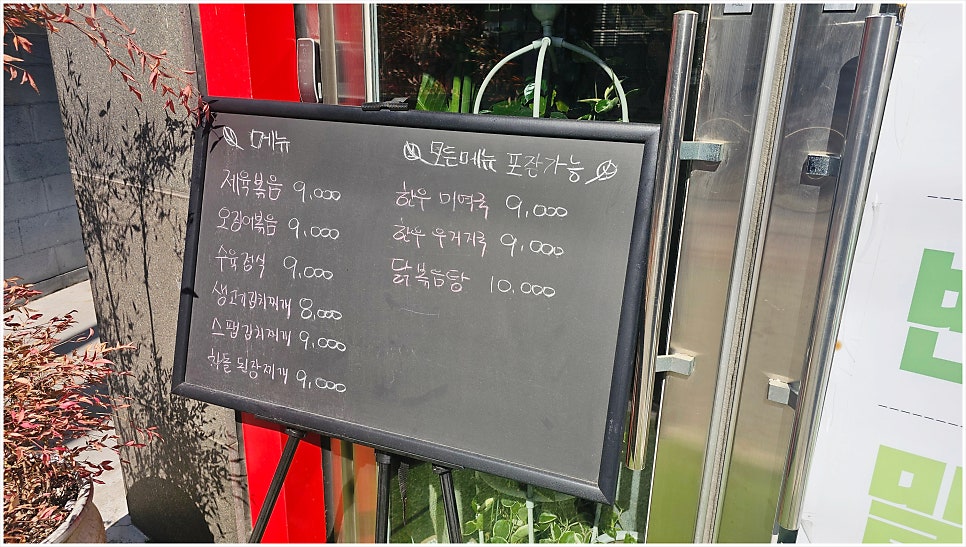 메뉴
제육볶음 9,000
오징어볶음 9,000
수육정식 9,000
생고기김치찌개 8,000
스팸김치찌개 9,000
차돌된장찌개 9,000
모든메뉴 포장가능
한우 미역국 9,000
한우 우거지국 9,000
닭볶음탕 10,000